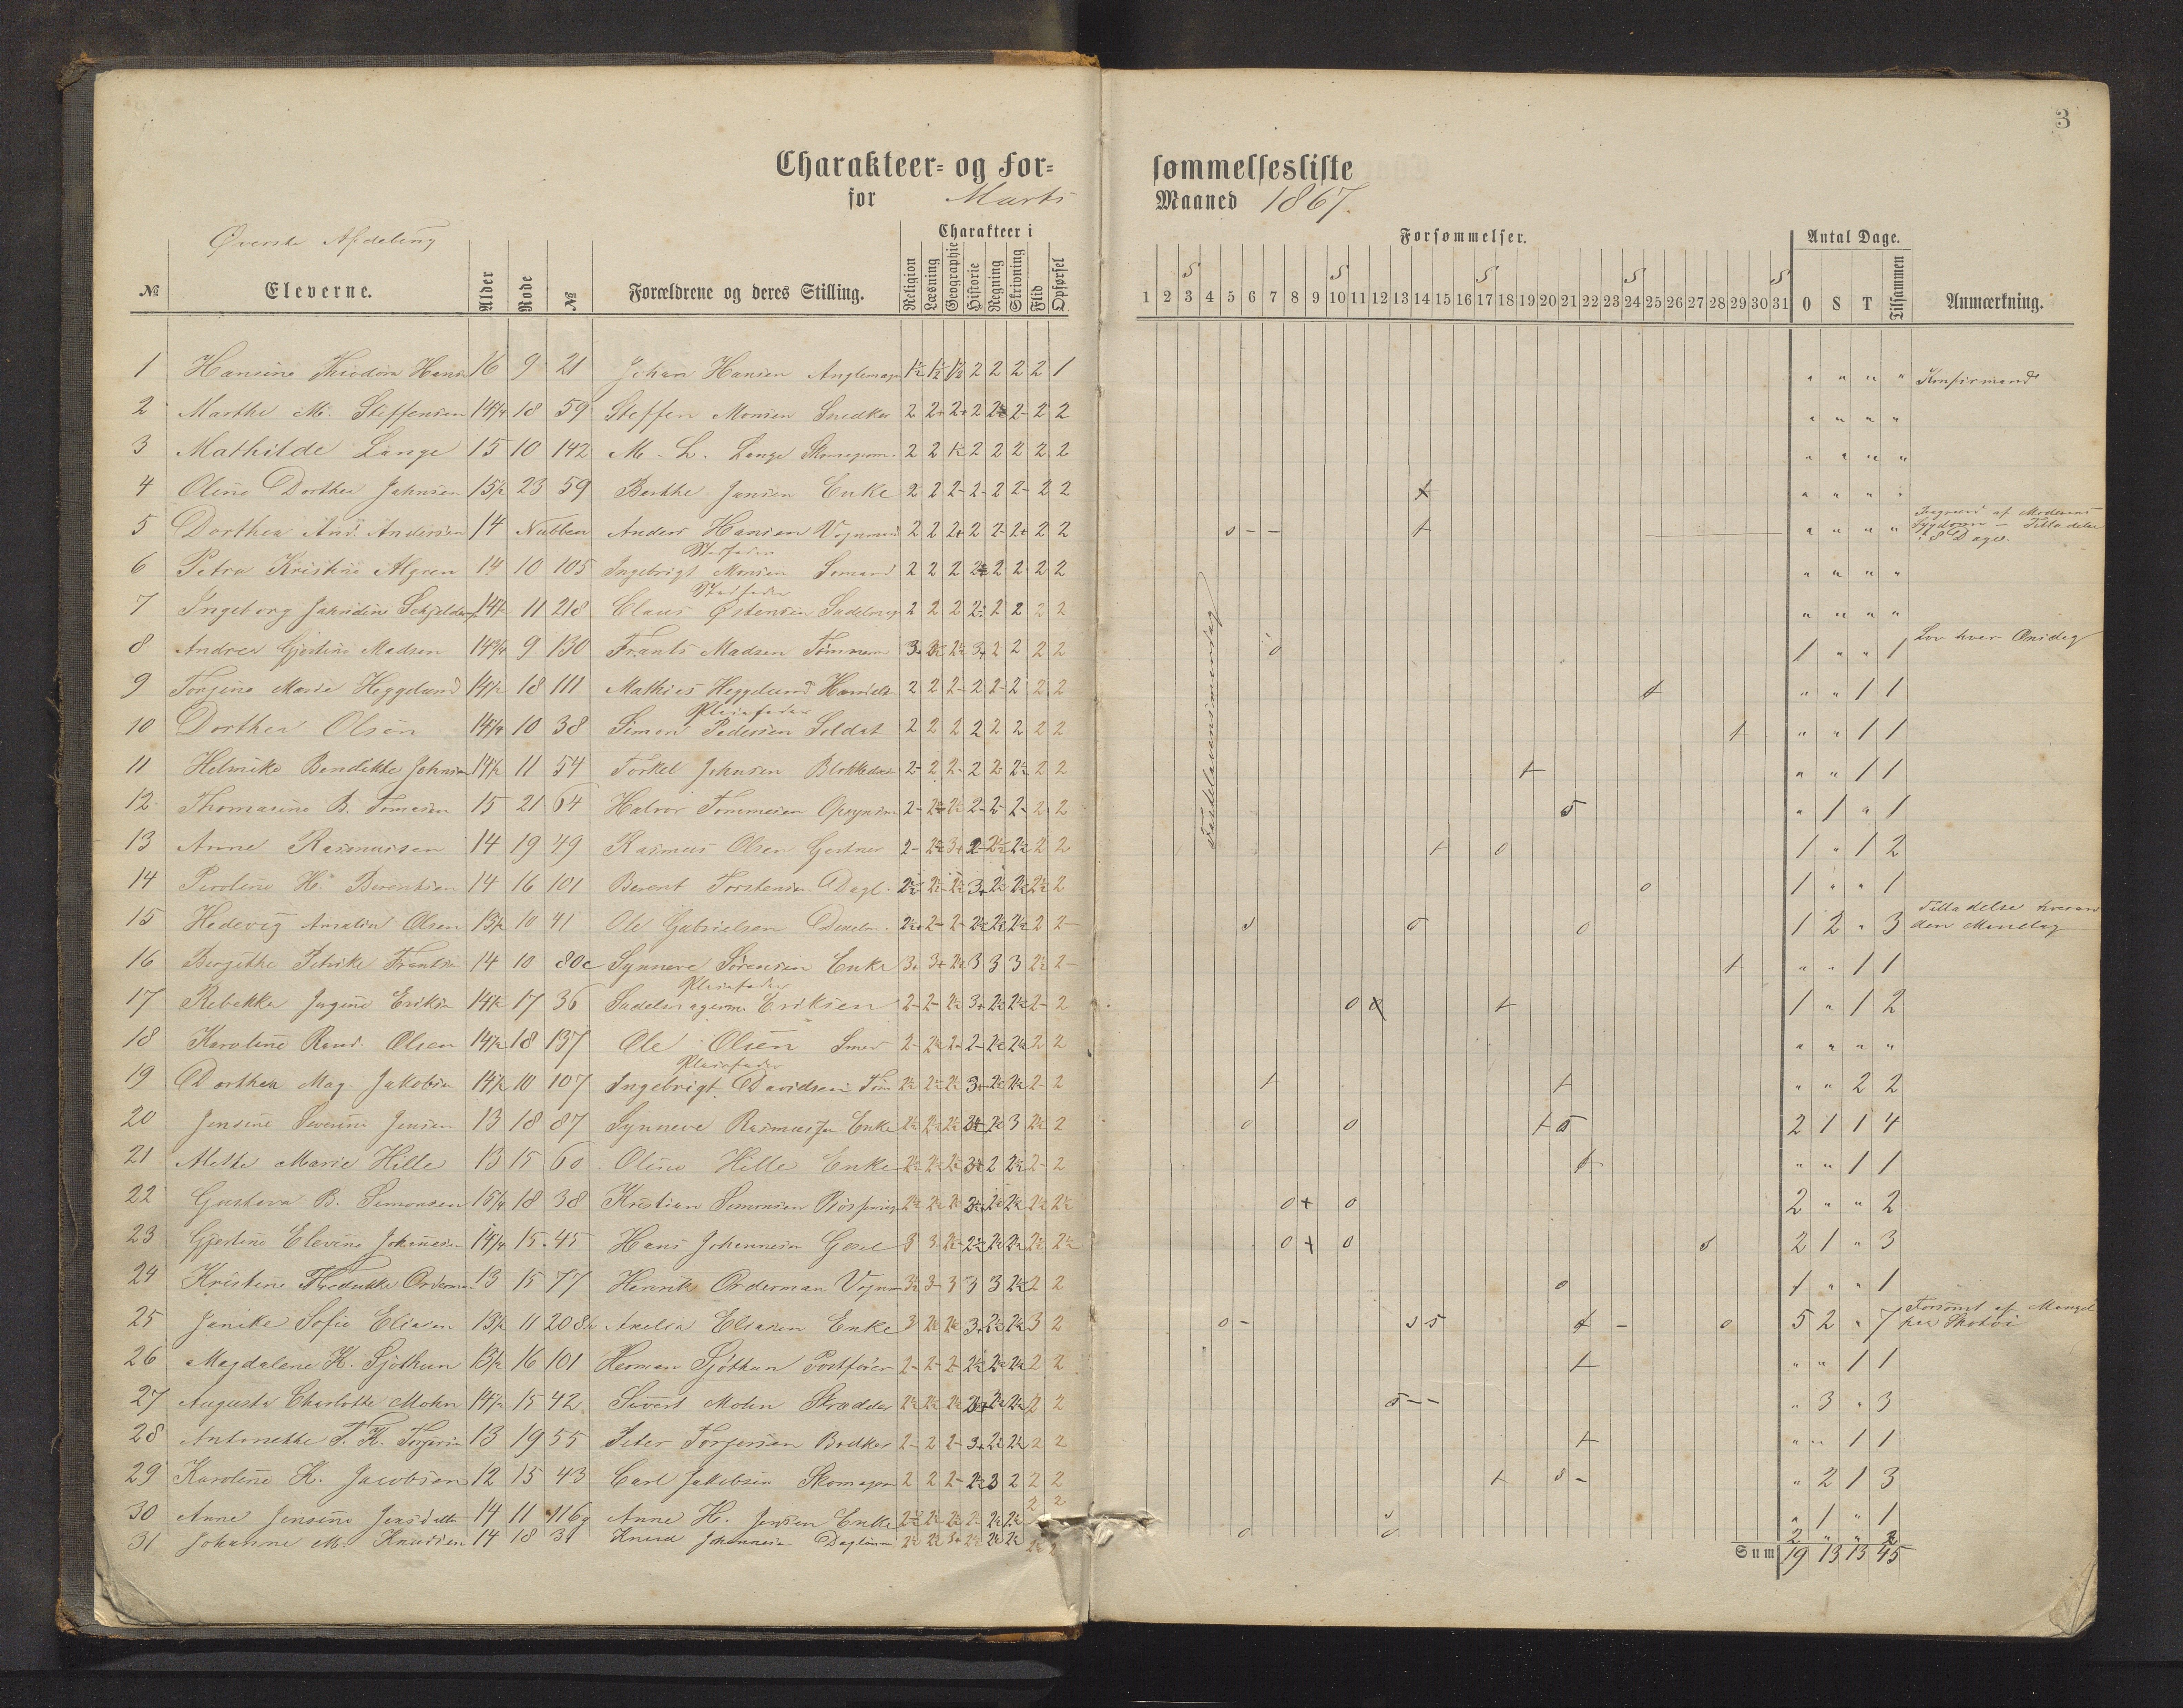 3
Charakteer- og For-
sømmelsesliste
for Marts
Maaned 1867.
Øverste Afdeling
Charakteer i
Forsømmelser.
Antal Dage.
№ Eleverne. Alder Rode № Forældrene og deres Stilling. Religion Læsning Geographie Historie Regning Skrivning Flid Opførsel
S S S S S
1 2 3 4 5 6 7 8 9 10 11 12 13 14 15 16 17 18 19 20 21 22 23 24 25 26 27 28 29 30 31 O S T Tilsammen Anmærkning.
Fastelavensmandag
1 Hansine Theodora 16 9 21 Johan Hansen 2 2 2 2 1 " " " " Konfirmand
2 Marthe M. Steffensen 18 59 Steffen Monsen Snedker 2 2+ 2+ 2 2- 2 2 " " " "
3 Mathilde Lange 15 10 142 M. L. Lange 2 2 2 2 2 2 2 " " " "
4 Oline Dorthea Johnsen 15½ 23 59 Berthe Jansen Enke 2 2 2- 2- 2 2- 2 2 + " " " "
5 Dorthea And. Andersen 14 Nubben Anders Hansen Vognmand 2 2 2+ 2 2- 2+ 2 2 s - - + " " " " Sygdom — Tilladelse
8 Dage.
Stedfader
6 Petra Kristine Algren 14 10 105 Ingebrigt Monsen Sømand 2 2 2 2 2 2 2 " " " "
Stedfader
7 Ingeborg 11 218 Claus Østensen 2 2 2 2½ 2 2 2 2 " " " "
8 Andrea Gjertine Madsen 14¾ 9 130 Frants Madsen 3+ 2½ 3+ 2 2 2 2 o 1 " " 1 Lov hver Onsdag
9 Torgine Marie Heggelund 14½ 18 111 Mathies Heggelund 2 2 2- 2 2- 2 2 2 + " " 1 1
Pleiefader
10 Dorthea Olsen 10 38 Simon Pedersen Soldat 2 2 2 2 2 2 2 2 + " " 1 1
11 Helmike Bendikte Johnsen 14½ 11 54 Torkel Johnsen 2- 2 2- 2 2- 2½ 2 2 + " " 1 1
12 Thomasine B. Tomesen 15 21 64 Halvor Tommesen 2- 2½ 2- 2- 2- 2 2 s " 1 " 1
13 Anne Rasmussen 14 19 49 Rasmus Olsen Gartner 2- 2½ 3+ 2- 2½ 2½ 2 2 + o 1 " 1 2
14 Peroline H. Berentsen 14 16 101 Berent Torstensen Dagl. 2½ 2½ 2½ 3+ 2½ 2½ 2½ 2 o 1 " " 1
15 Hedevig Amalia Olsen 13½ 10 41 Ole Gabrielsen 2½ 2- 2- 2½ 2½ 2½ 2 2- s s o 1 2 " 3 Tilladelse hveran
den Mandag
16 Bergitthe 14 10 80c Synneve Sørensen Enke 3+ 3+ 2½ 3 3 3 2½ 2- + " " 1 1
Pleiefader
17 Rebekka Jugine 14½ 17 36 Eriksen 2- 2- 2½ 3+ 2½ 2½ 2- 2 o o + 1 " 1 2
18 Karoline Rand. Olsen 14½ 18 137 Ole Olsen Smed 2- 2½ 2- 2- 2½ 2½ 2 2 " " " "
Pleiefader
19 Dorthea Mag. 14½ 10 107 Ingebrigt Davidsen 2½ 2½ 2½ 3+ 2½ 2½ 2- 2 + + " " 2 2
20 Jensine Severine Jensen 13 18 87 Synneve Enke 2½ 2½ 2½ 2½ 3 2½ 2 o o + s 2 1 1 4
21 Alethe Marie Hille 13 15 60 Oline Hille Enke 2½ 2½ 2½ 2 2½ 2- 2 + " " 1 1
22 Gustava B. Simonsen 15¼ 18 38 Kristian Simonsen 2½ 2½ 2½ 2½ 2½ 2½ 2½ o + o 2 " " 2
23 Gjertine Elevine Johannesen 14¼ 15 45 Hans Johannesen 3 3 2½ 2½ 2½ 2½ 2½ 2½ o + o s 2 1 " 3
24 Kristine 13 15 77 Henrik Orderman 3 3 3 3 2½ 2 2 o 1 " " 1
25 Janike Sofie Eliasen 13½ 11 208 Amelia Eliasen Enke 3 2½ 2½ 3+ 2½ 2½ 3 2 o - s s + - o 5 2 " 7 Forsømt af Mangel
paa Skotøi
26 Magdalene K. Sjøthun 13½ 16 101 Herman Sjøthun 2- 2- 2- 2½ 2½ 2½ 2 2 + " " 1 1
27 Augusta Charlotte Mohn 14½ 15 42 Sivert Mohn Skrædder 2½ 2½ 2½ 2½ 2½ 2 2 s - - " 3 " 3
28 Antonethe 13 19 55 Peter Torgersen Bødker 2- 2 2- 3+ 2½ 2½ 2 2 + " " 1 1
29 Karoline K. Jacobsen 12 15 43 Carl Jakobsen 2 2 2- 2½ 3 2 2 2 + s - " 2 1 3
30 Anne Jensine 14 11 116g Anne H. Jensen Enke 2½ 2½ 2½ 2½ 2½ 2½ 2 2 s " 1 " 1
31 Johanne M. Knudsen 14 18 31 Knud Johannesen 2½ 2½ 3+ 2½ 2½ 2½ o o 2 " " 2
Sum 19 13 13 45